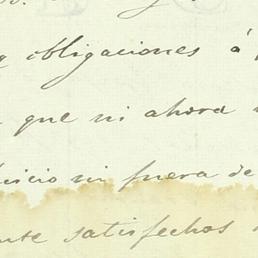 y obligaciones á
que ni ahora
icio ni fuera de
use satisfechos